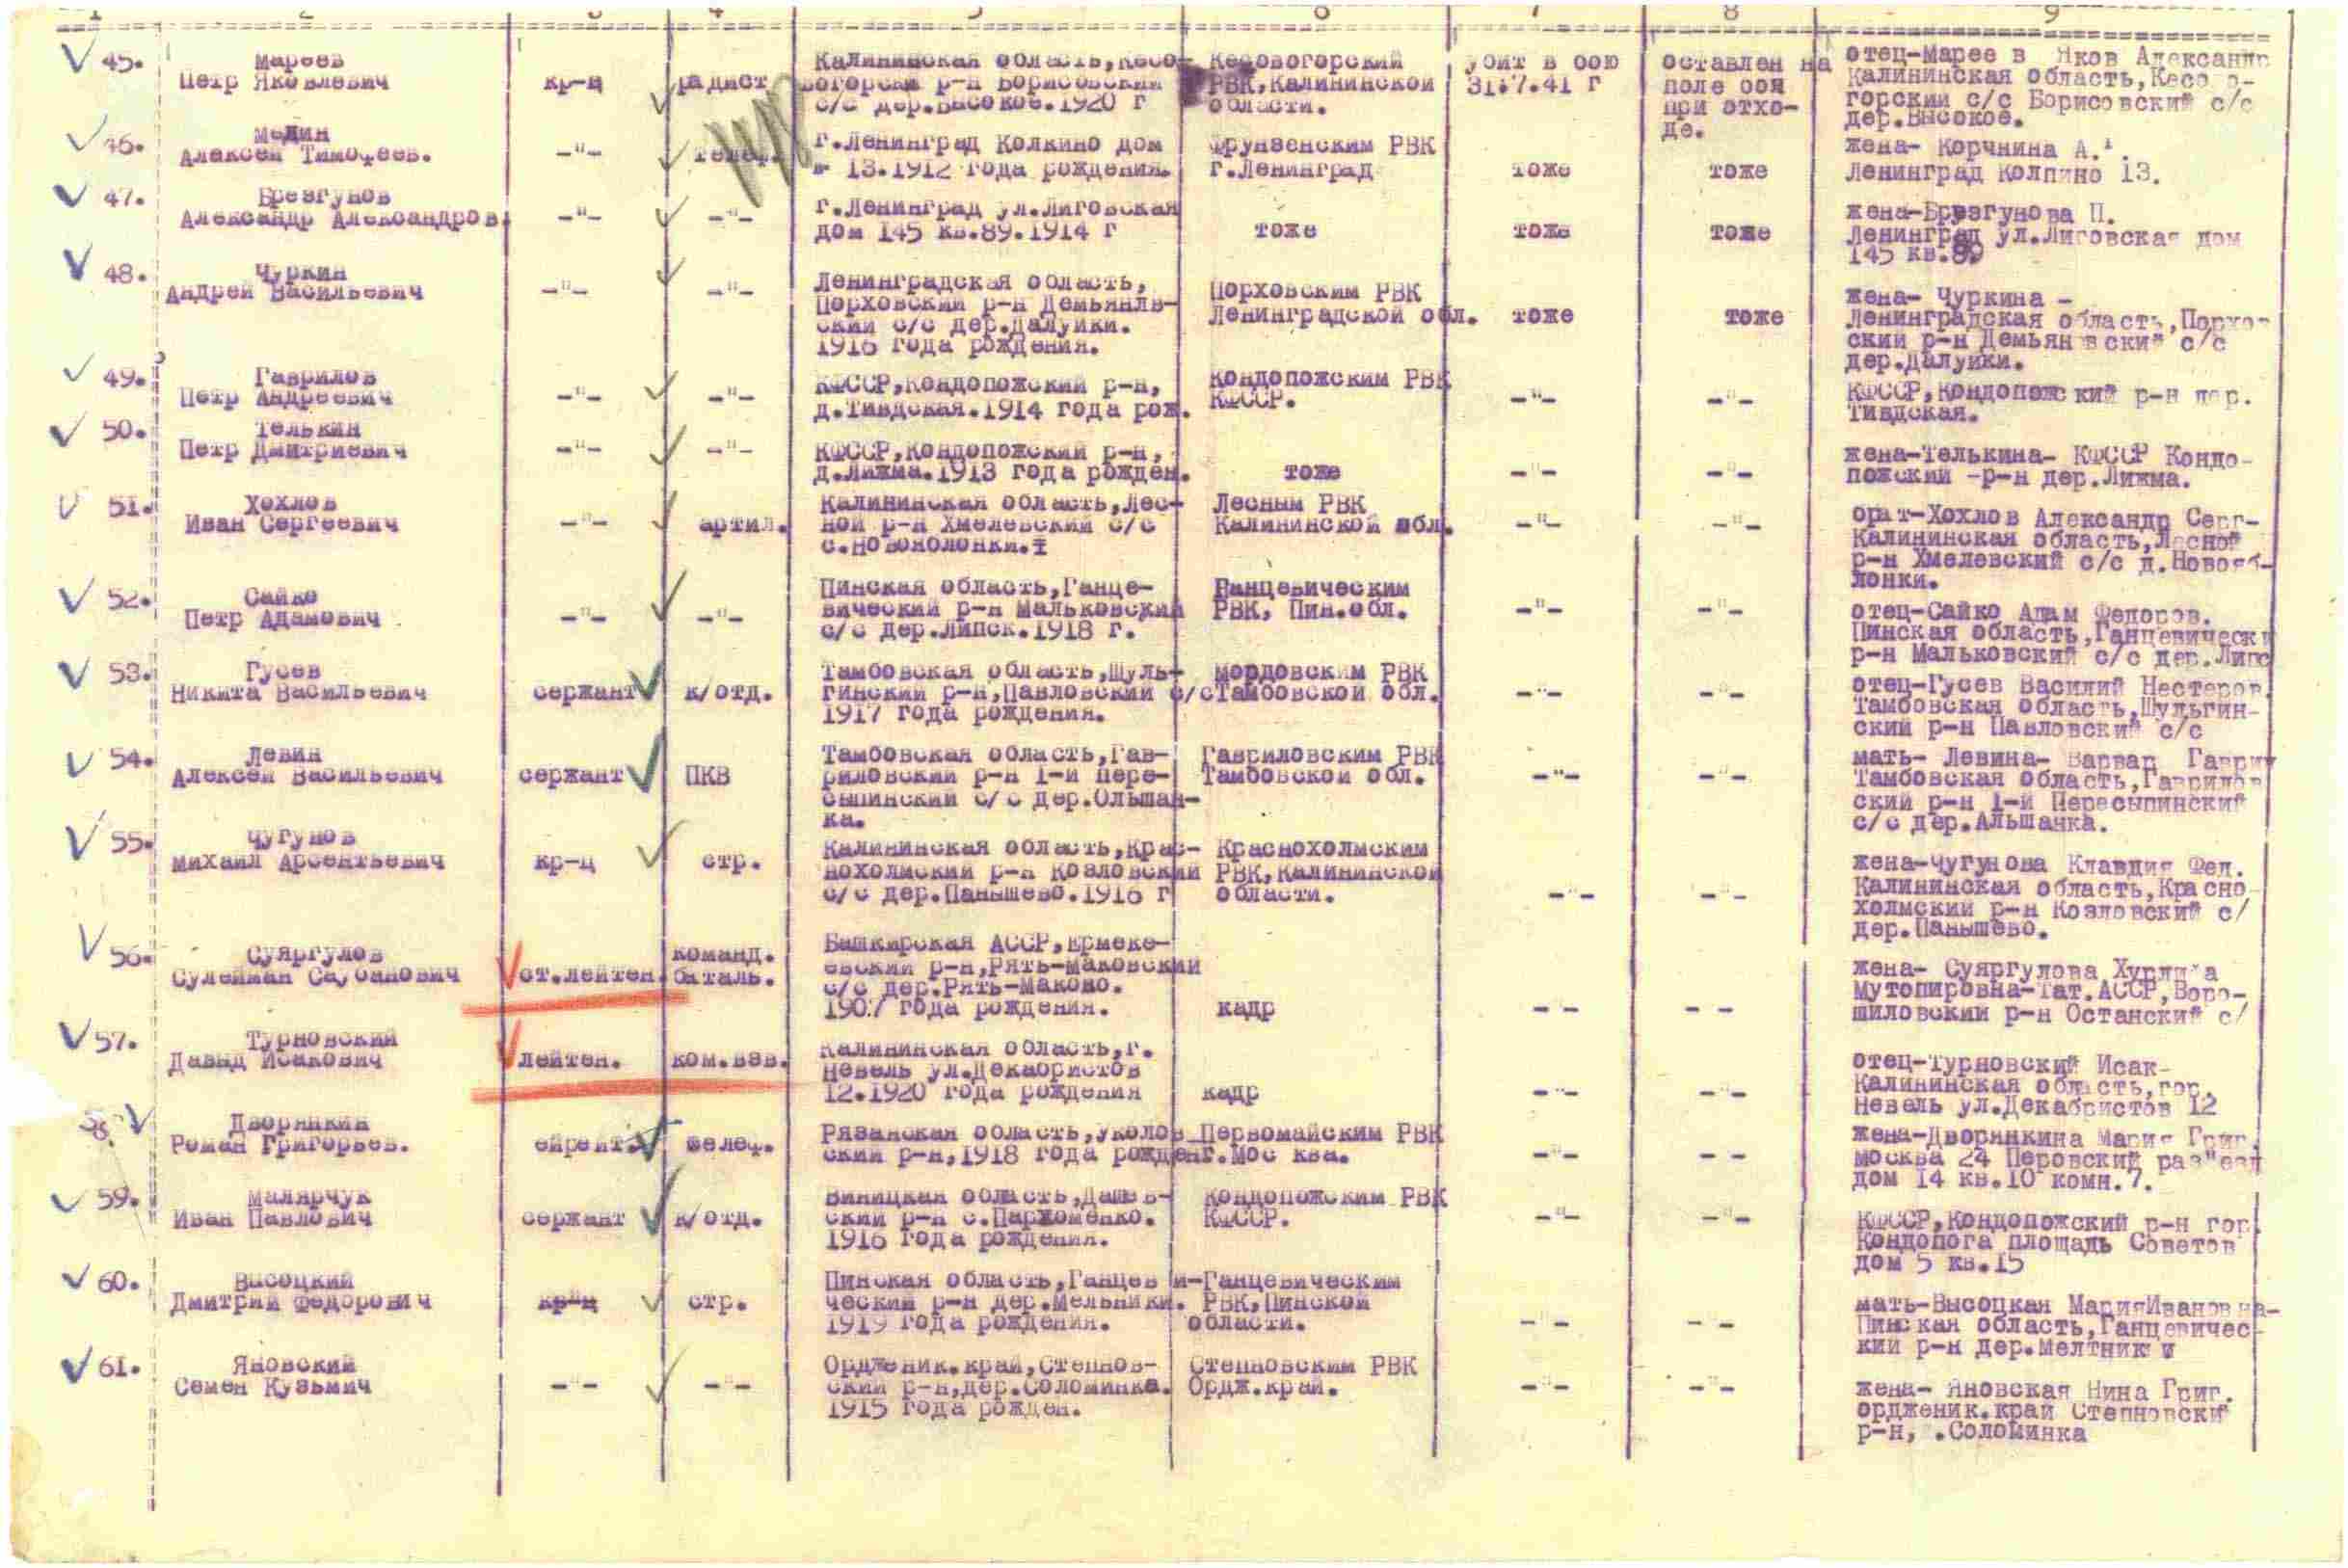 1 2 3 4 5 6 7 8 9
45. Мареев
Петр Яковлевич
кр-ц
радист
Калининская область, Кесо-
вогорский р-н Борисовский
с/с дер.Высокое.1920 г
Кесовогорский
РВК,Калининской
области.
убит в бою
31.7.41 г
оставлен на
поле боя
при отхо-
де.
отец-Марее в Яков Александр
Калининская область,Кесо о-
горский с/с Борисовский с/с
дер.Высокое.
46. Медин
Алексей Тимофеев.
-"-
телеф.
г.Ленинград Колкино дом
13.1912 года рождения.
Фрунзенским РВК
г.Ленинград
тоже
тоже
жена- Корчнина А.
Ленинград Колпино 13.
47. Брезгунов
Александр Александров.
-"-
-"-
г.Ленинград ул.Лиговская
дом 145 кв.89.1914 г
тоже
тоже
тоже
жена-Брезгунова П.
Ленинград ул.Лиговская дом
145 кв.89
48. Чуркин
Андрей Васильевич
-"-
-"-
Ленинградская область,
Порховский р-н Демьянлв-
ский с/с дер.Далуйки.
1916 года рождения.
Порховским РВК
Ленинградской обл.
тоже
тоже
жена- Чуркина -
Ленинградская область,Порхов
ский р-н Демьян вский с/с
дер.Далуйки.
49. Гаврилов
Петр Андреевич
-"-
-"-
КФССР,Кондопожский р-н,
д.Тивдская.1914 года рож.
Кондопожским РВК
КФССР.
-"-
-"-
КФССР,Кондопожский р-н дер.
Тивдская.
50. Телькин
Петр Дмитриевич
-"-
-"-
КФССР,Кондопожский р-н,
д.Лижма.1913 года рожден.
тоже
-"-
-"-
жена-Телькина- КФССР Кондо-
пожский -р-н дер.Лижма.
51. Хохлов
Иван Сергеевич
-"-
артил.
Калининская область,Лес-
ной р-н Хмелевский с/с
Лесным РВК
Калининской обл.
-"-
-"-
брат-Хохлов Александр Серг-
Калининская область,Лесной
р-н Хмелевский с/с д.Новояб-
лонки.
52. Сайко
Петр Адамович
-"-
-"-
Пинская область,Ганце-
вический р-н Мальковский
с/с дер.Липск.1918 г.
Ганцевическим
РВК, Пин.обл.
-"-
-"-
отец-Сайко Адам Федоров.
Пинская область,Ганцевически
р-н Мальковский с/с дер.Липс
53. Гусев
Никита Васильевич
сержант
к/отд.
Тамбовская область,Шуль-
гинский р-н,Павловский с/с
1917 года рождения.
Мордовским РВК
Тамбовской обл.
-"-
-"-
отец-Гусев Василий Нестеров.
Тамбовская область,Шульгин-
ский р-н Павловский с/с
54. Левин
Алексей Васильевич
сержант
ПКВ
Тамбовская область,Гав-
риловский р-н 1-й пере-
сыпинский с/с дер.Ольшан-
ка.
Гавриловским РВК
Тамбовской обл.
-"-
-"-
мать- Левина- Варвар Гаври
Тамбовская область,Гаврилов
ский р-н 1-й Пересыпинский
с/с дер.Альшанка.
55. Чугунов
Михаил Арсентьевич
кр-ц
стр.
Калининская область,Крас-
нохолмский р-н Козловский
с/с дер.Панышево.1916 г
Краснохолмским
РВК,Калининской
области.
-"-
-"-
жена-Чугунова Клавдия Фед.
Калининская область,Красно-
холмский р-н Козловский с/
дер.Панышево.
56. Суяргулов
Сулейман Саубанович
ст.лейтен.
команд.
баталь.
Башкирская АССР,Ермеке-
евский р-н,Рять-Маковский
с/с дер.Рять-Маково.
1907 года рождения.
кадр
- -
- -
жена- Суяргулова
Мутопировна-Тат.АССР,Воро-
шиловский р-н Останский с/
57. Турновский
Давыд Исакович
лейтен.
ком.взв.
Калининская область,г.
Невель ул.Декабристов
12.1920 года рождения
кадр
-"-
-"-
отец-Турновский Исак-
Калининская область,гор.
Невель ул.Декабристов 12
58. Дворянкин
Роман Григорьев.
ефрейт.
телеф.
Рязанская область,Уколов
ский р-н,1918 года рожден
Первомайским РВК
г.Москва.
-"-
- -
жена-Дворянкина Мария Григ.
Москва 24 Перовский раз"езд
дом 14 кв.10 комн.7.
59. Малярчук
Иван Павлович
сержант
к/отд.
Виницкая область,Дашев-
ский р-н с.Пархоменко.
1916 года рождения.
Кондопожским РВК
КФССР.
-"-
-"-
КФССР,Кондопожский р-н гор.
Кондопога площадь Советов
дом 5 кв.15
60. Высоцкий
Дмитрий Федорович
кр-ц
стр.
Пинская область,Ганцев и-
ческий р-н дер.Мельники.
1919 года рождения.
Ганцевическим
РВК,Пинской
области.
-"-
- -
мать-Высоцкая МарияИвановна-
Пинская область,Ганцевичес-
кий р-н дер.Мелтники
61. Яновский
Семен Кузьмич
-"-
-"-
Ордженик.край,Степнов-
ский р-н,дер.Соломинка.
1915 года рожден.
Степновским РВК
Ордж.край.
-"-
-"-
жена- Яновская Нина Григ.
ордженик.край Степновский
р-н, .Соломинка